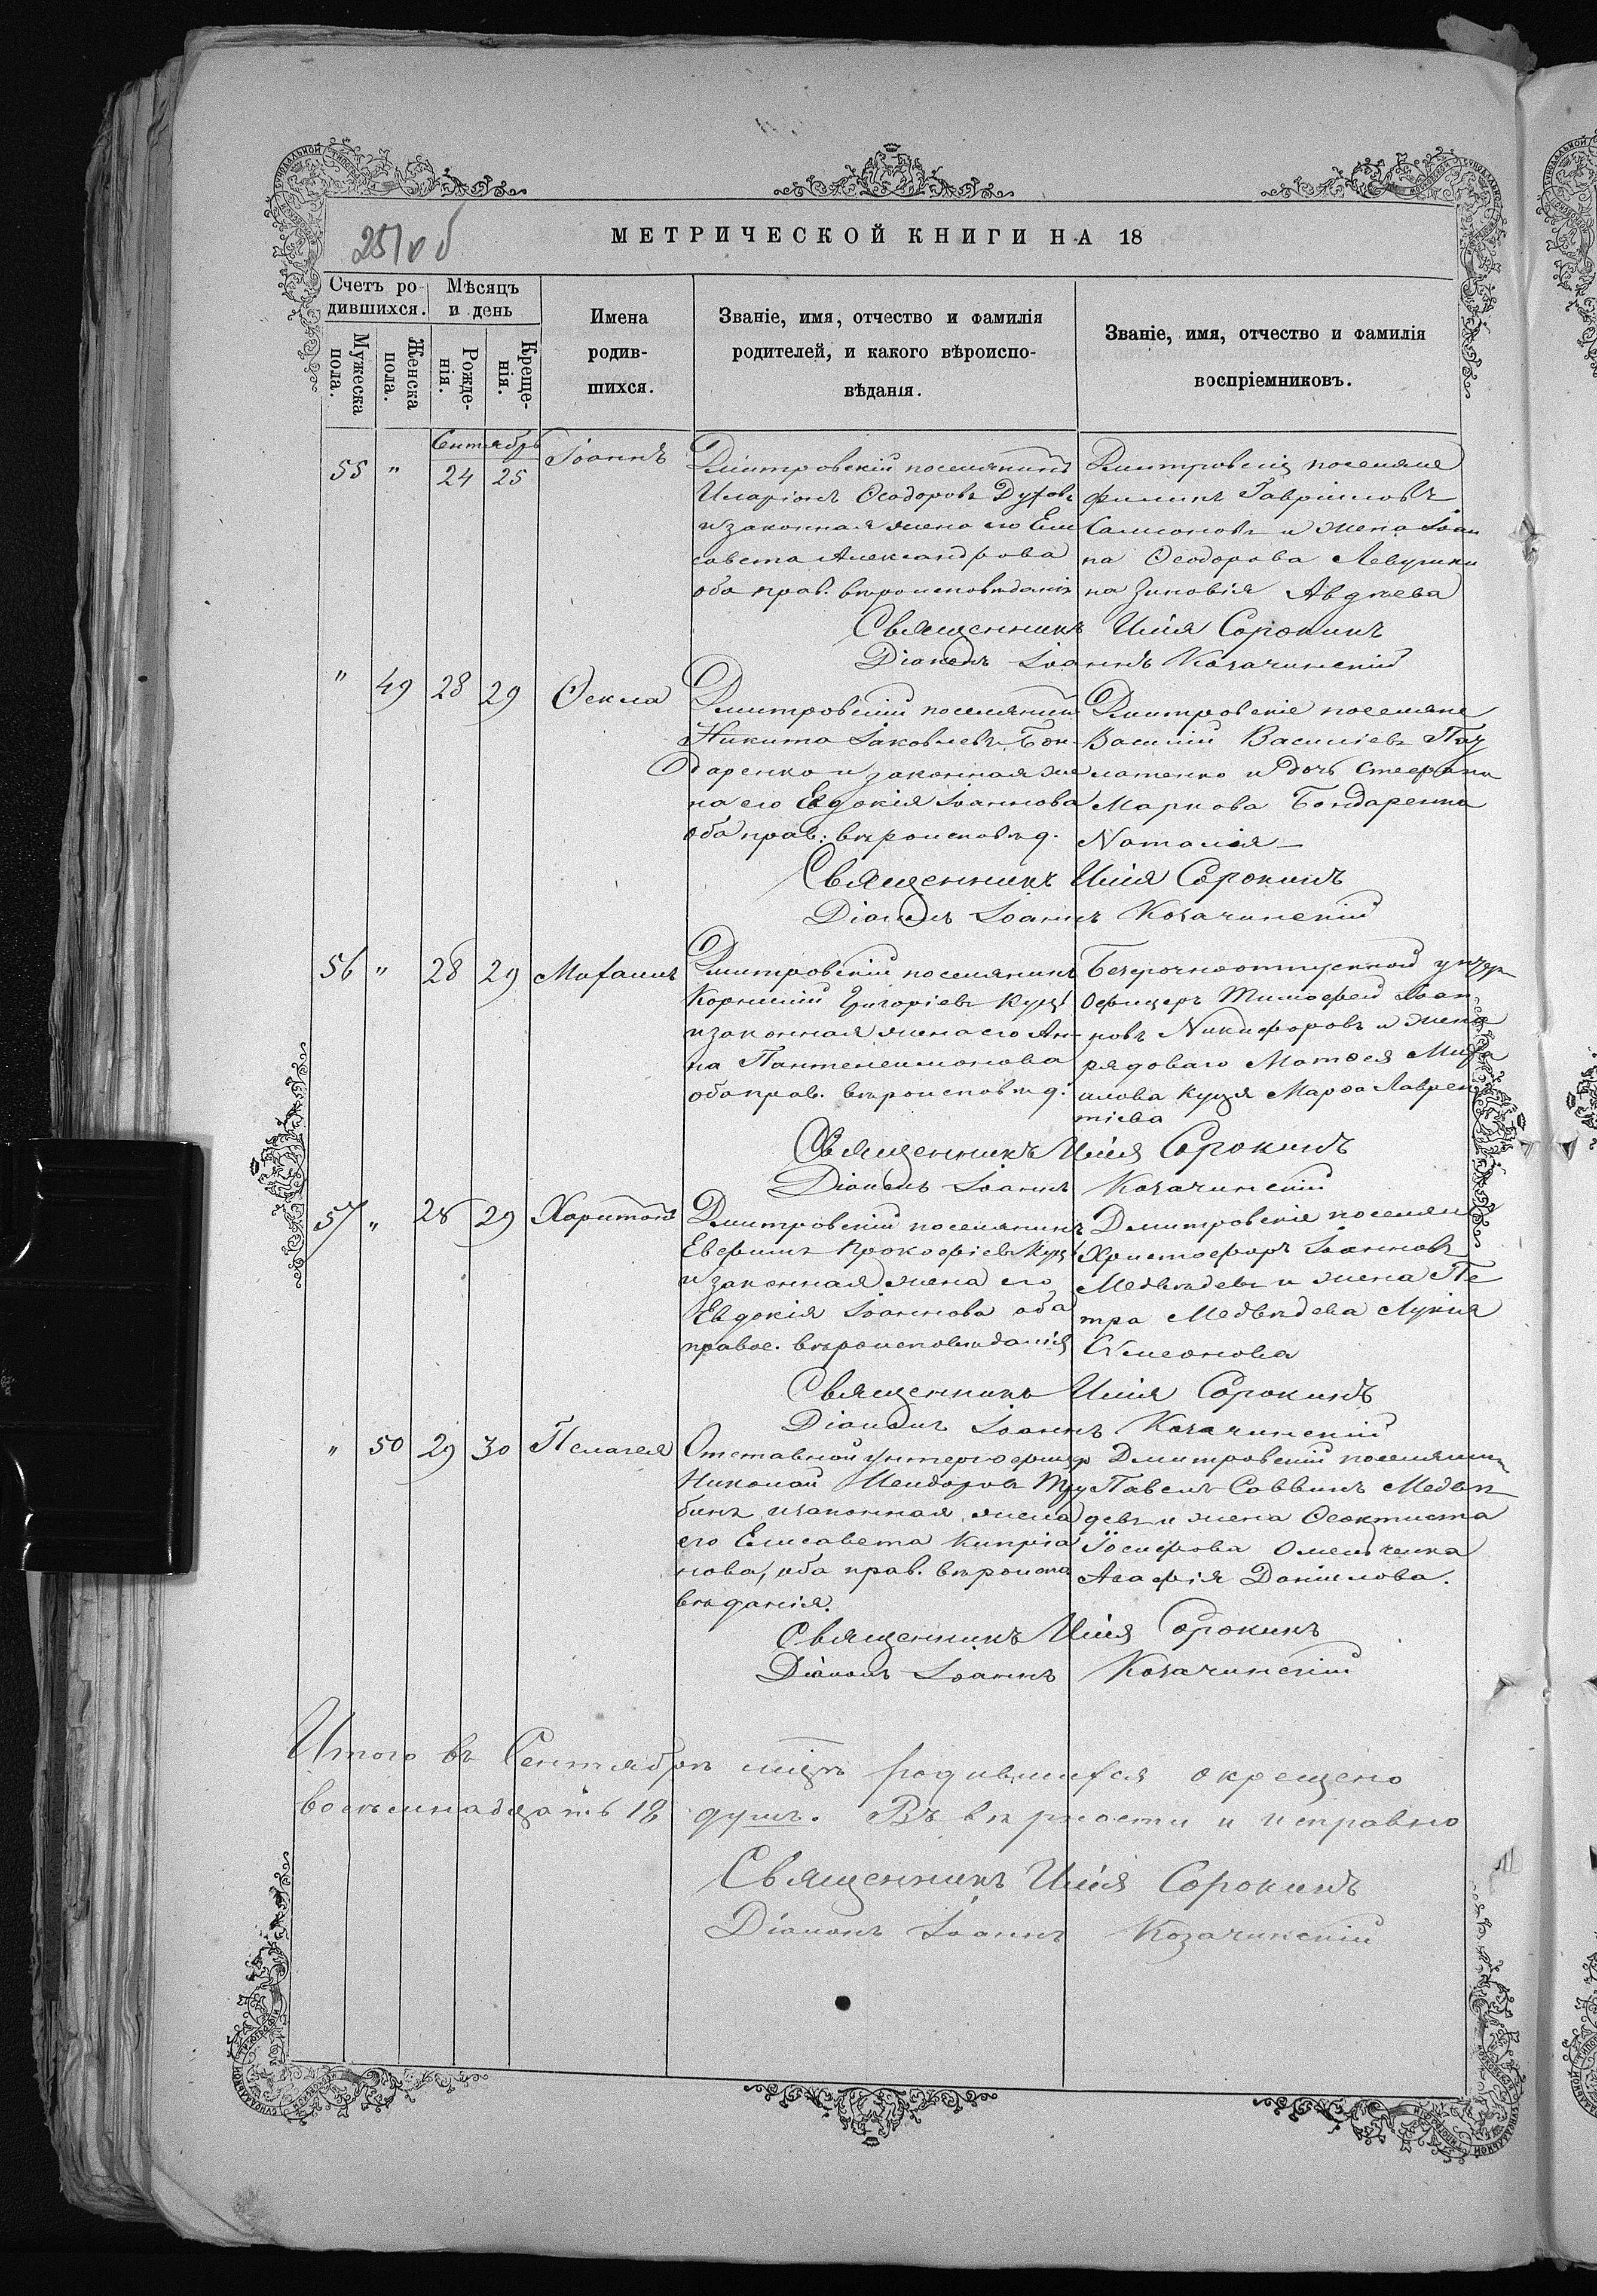 251 об
МЕТРИЧЕСКОЙ КНИГИ НА 18
Счетъ ро-
дившихся.
Мѣсяцъ
и день
Мужеска
пола.
Женска
пола.
Рожде-
нія.
Креще-
нія.
Имена
родив-
шихся.
Званіе, имя, отчество и фамилія
родителей, и какого вѣроиспо-
вѣданія.
Званіе, имя, отчество и фамилія
воспріемниковъ.
Сентябрь
55 " 24 25 Іоаннъ
Дмитровскій поселянинъ
Иларіонъ Ѳеодоровъ Духовъ
и законная жена его Ели
савета Александрова
оба прав. вѣроисповѣданія
Дмитровскіе поселяне
Филипъ Гавріиловъ
Самсоновъ и жена Іоан
на Ѳеодорова Левушки
на Зиновія Авдѣева
Священникъ Илія Сорокинъ
Діаконъ Іоаннъ Козачинскій
" 49 28 29 Ѳекла
Дмитровскій поселянинъ
Никита Іаковлевъ Бон-
даренко и законная же
на его Евдокія Іоаннова
оба прав. вѣроисповѣд.
Дмитровскіе поселяне
Василій Василіевъ
и дочь Стефана
Маркова Бондаренка
Наталія
Священникъ Илія Сорокинъ
Діаконъ Іоаннъ Козачинскій
56 " 28 29 Михаилъ
Дмитровскій поселянинъ
Корнилій Григоріевъ Куц
и законная жена его Ан-
на Пантелеимонова
оба прав. вѣроисповѣд.
Безсрочноотпускной унтер
Офицеръ Тимофей Іоан
новъ Никифоровъ и жена
рядоваго Матѳея Миха
илова Куця Марѳа Лаврен
тіева
Священникъ Илія Сорокинъ
Діаконъ Іоаннъ Козачинскій
57 " 28 29 Харитонъ
Дмитровскій поселянинъ
Евфимъ Прокофіевъ Куц
и законная жена его
Евдокія Іоаннова оба
правос. вѣроисповѣданія
Дмитровскіе поселяне
Христофоръ Іоанновъ
Медвѣдевъ и жена Пе
тра Медвѣдева Лукія
Симеонова
Священникъ Илія Сорокинъ
Діаконъ Іоаннъ Козачинскій
" 50 29 30 Пелагея
Отставной унтерофицер
Николай Исидоровъ Тру
бинъ и законная жена
его Елисавета Кипріа
нова, оба прав. вѣроиспо
вѣданія.
Дмитровскій поселянинъ
Павелъ Саввинъ Медвѣ
девъ и жена Ѳеоктиста
Іосифова Омельченка
Агафія Даніилова.
Священникъ Илія Сорокинъ
Діаконъ Іоаннъ Козачинскій
Итого въ Сентябрѣ мцѣ родившихся окрещено
восемьнадцать 18 душъ. Въ вѣрности и исправно
Священникъ Илія Сорокинъ
Діаконъ Іоаннъ Козачинскій